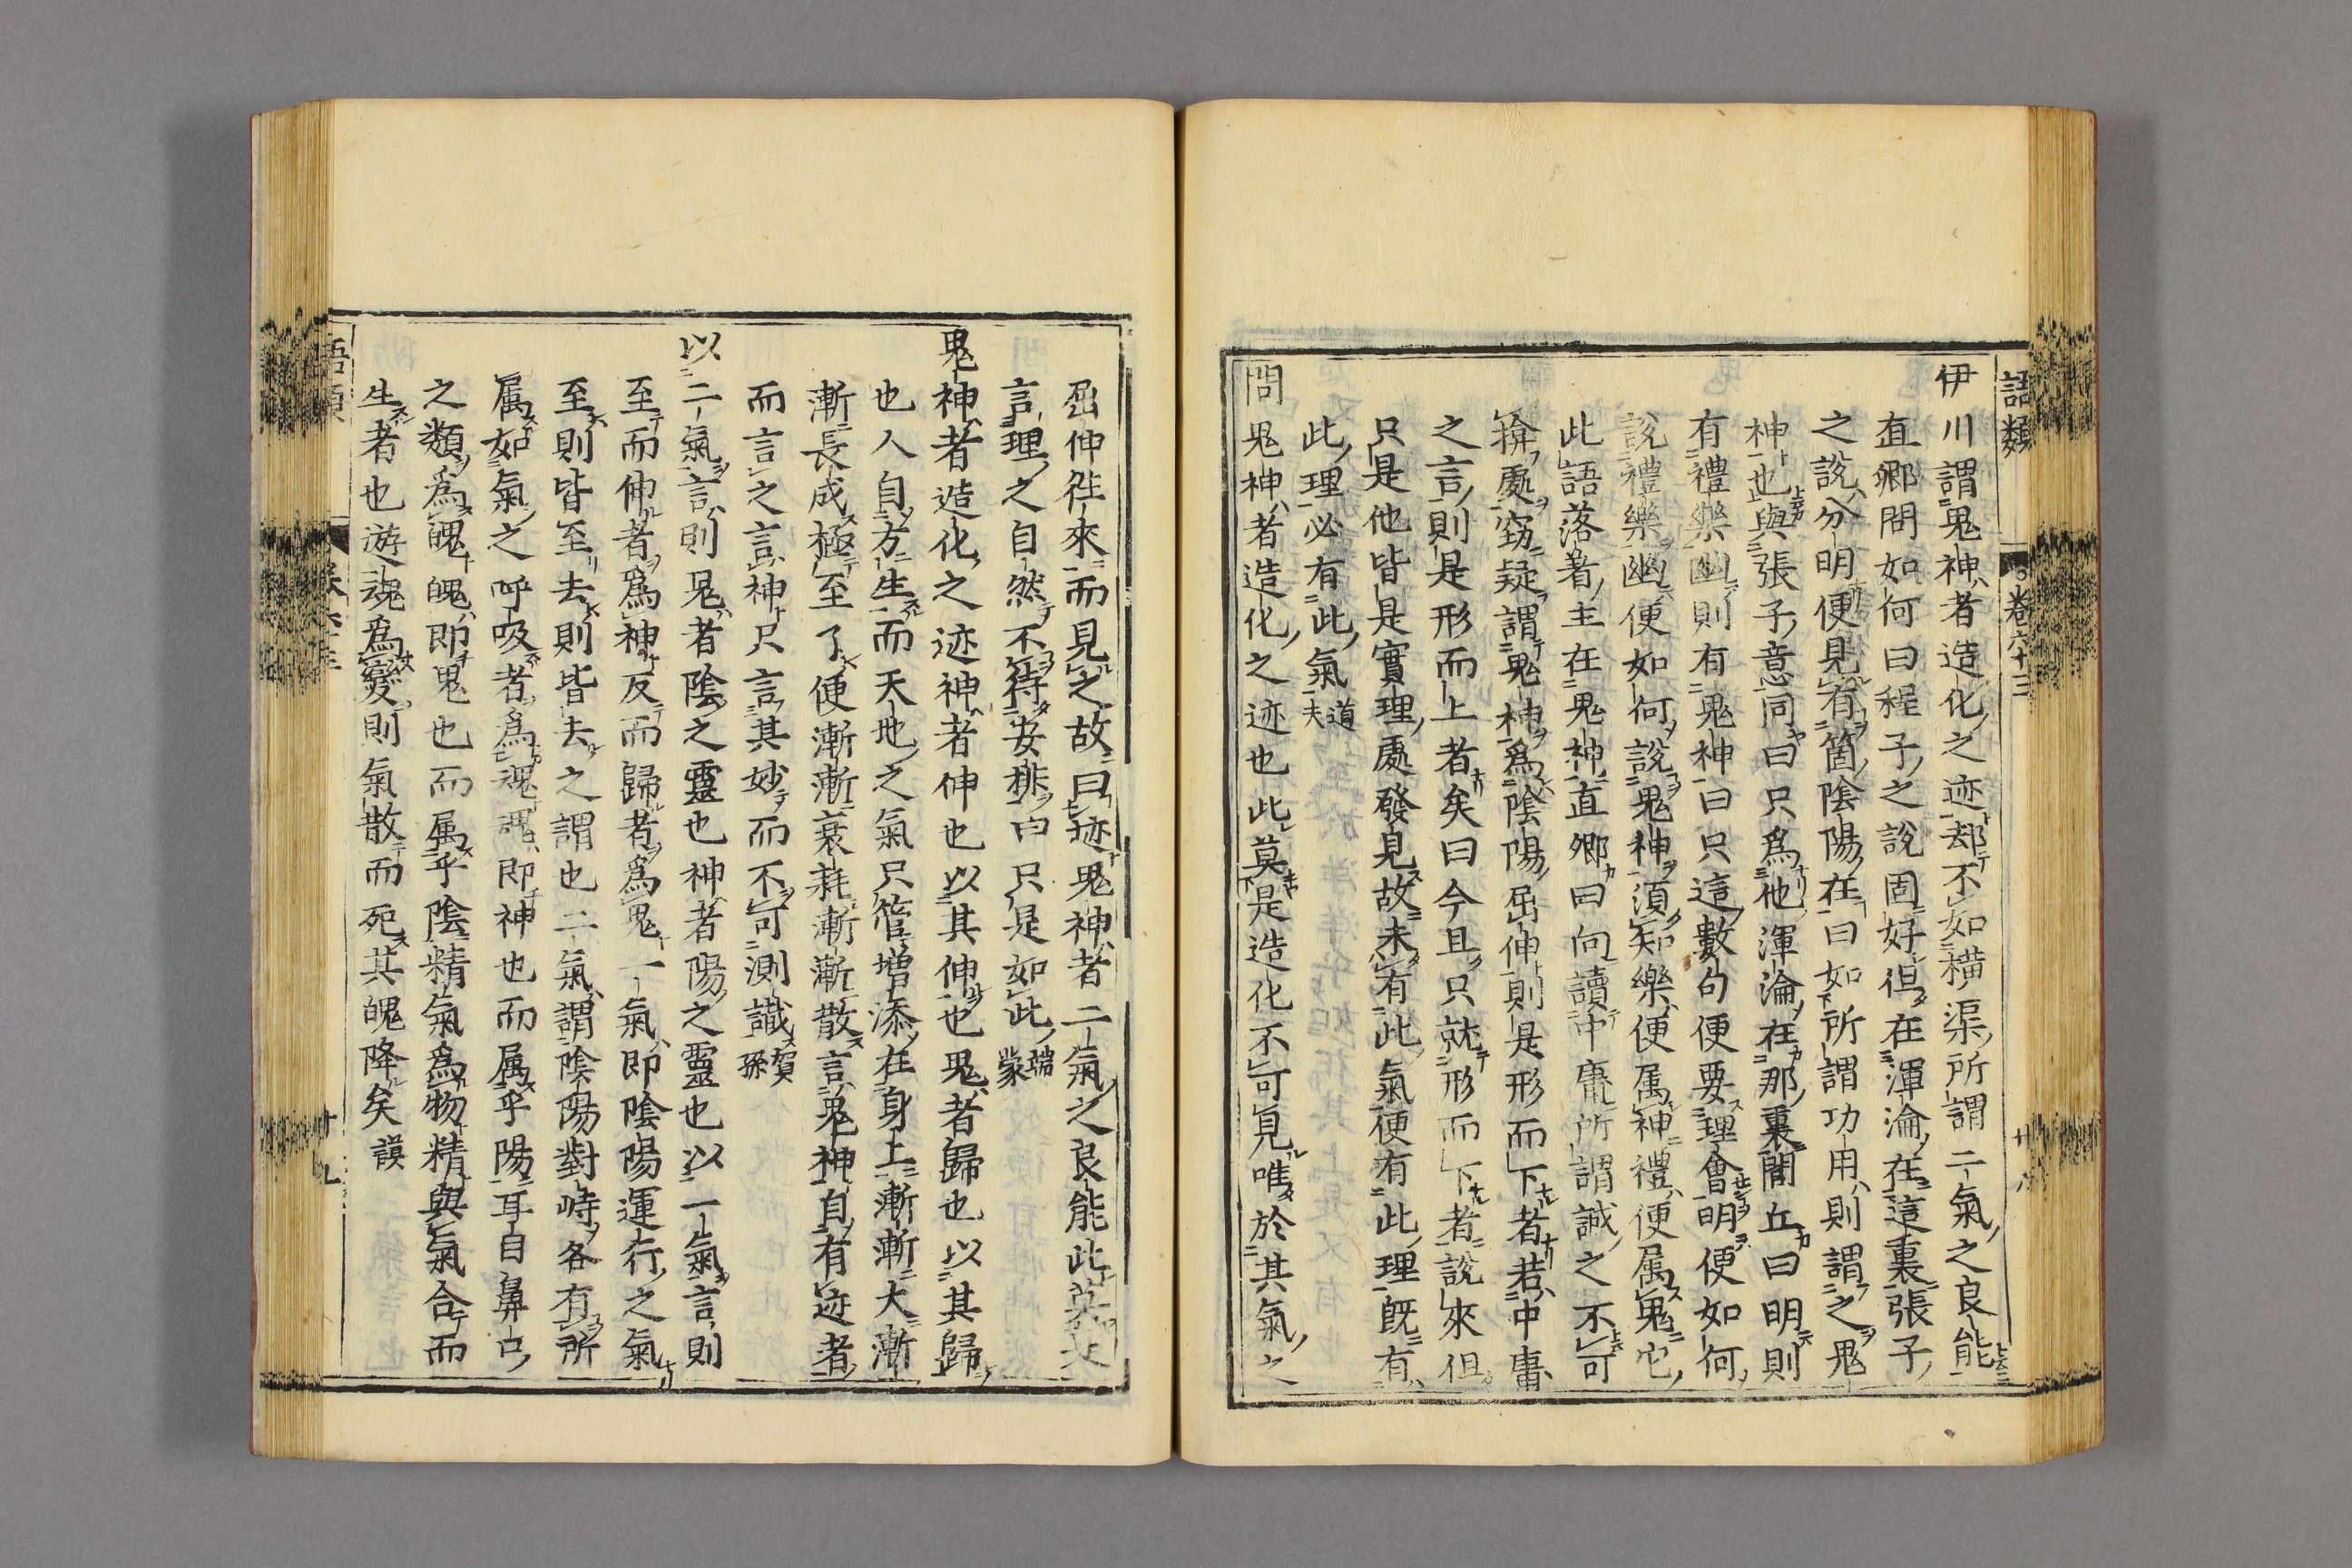 語類
卷六十三
十八
伊川謂鬼神者造化之迹却不如橫渠所謂二氣之良能
直卿問如何曰程子之說固好但在渾淪在這裏張子
之說分明便見有箇陰陽在曰如所謂功用則謂之鬼
神也與張子意同曰只爲他渾淪在那裏閭丘曰明則
有禮樂幽則有鬼神曰只這數句便要理會明便如何
說禮樂幽便如何說鬼神須知樂便属神禮便属鬼它
此語落著主在鬼神直卿曰向讀中庸所謂誠之不可
揜處竊疑謂鬼神爲陰陽屈伸則是形而下者若中庸
之言則是形而上者矣曰今且只就形而下者說來但
只是他皆是實理處發見故未有此氣便有此理既有
此理必有此氣道夫
問鬼神者造化之迹也此莫是造化不可見唯於其氣之
屈伸往來而見之故曰迹鬼神者二氣之良能此莫是
言理之自然不待安排曰只是如此端蒙
鬼神者造化之迹神者伸也以其伸也鬼者歸也以其歸
也人自方生而天地之氣只管增添在身上漸漸大漸
漸長成極至了便漸漸衰耗漸漸散言鬼神自有迹者
而言之言神只言其妙而不可測識賀孫
以二氣言則鬼者陰之靈也神者陽之靈也以一氣言則
至而伸者爲神反而歸者爲鬼一氣即陰陽運行之氣
至則皆至去則皆去之謂也二氣謂陰陽對峙各有所
属如氣之呼吸者爲魂魂即神也而属乎陽耳目鼻口
之類爲魄魄即鬼也而属乎陰精氣爲物精與氣合而
生者也游魂爲變則氣散而死其魄降矣謨
語類
卷六十三
十九